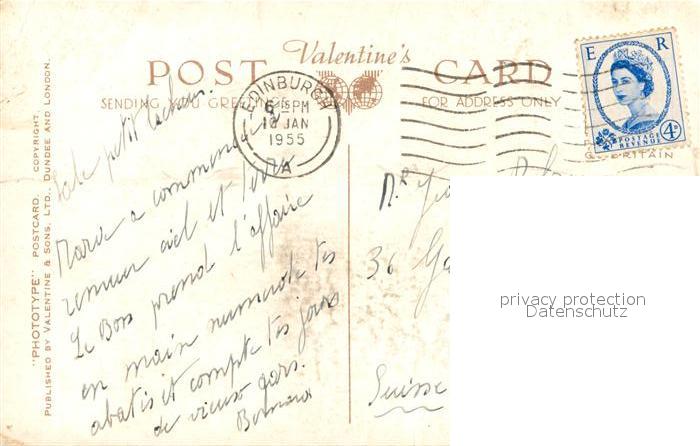 Valentine's
POST CARD
SENDING YOU GREETINGS
FOR ADDRESS ONLY
EDINBURGH
6 15 PM
10 JAN
1955
A
E R
POSTAGE
REVENUE
4D
BRITAIN
"PHOTOTYPE" POSTCARD. COPYRIGHT.
PUBLISHED BY VALENTINE & SONS, LTD., DUNDEE AND LONDON.
Sale petit cochon.
Marc a commencé à
remuer ciel et terre
Le Boss prend l'affaire
en main numerote tes
abatis et compte tes jours
de vieux gars.
Bernard
Mr
36
Suisse
privacy protection
Datenschutz